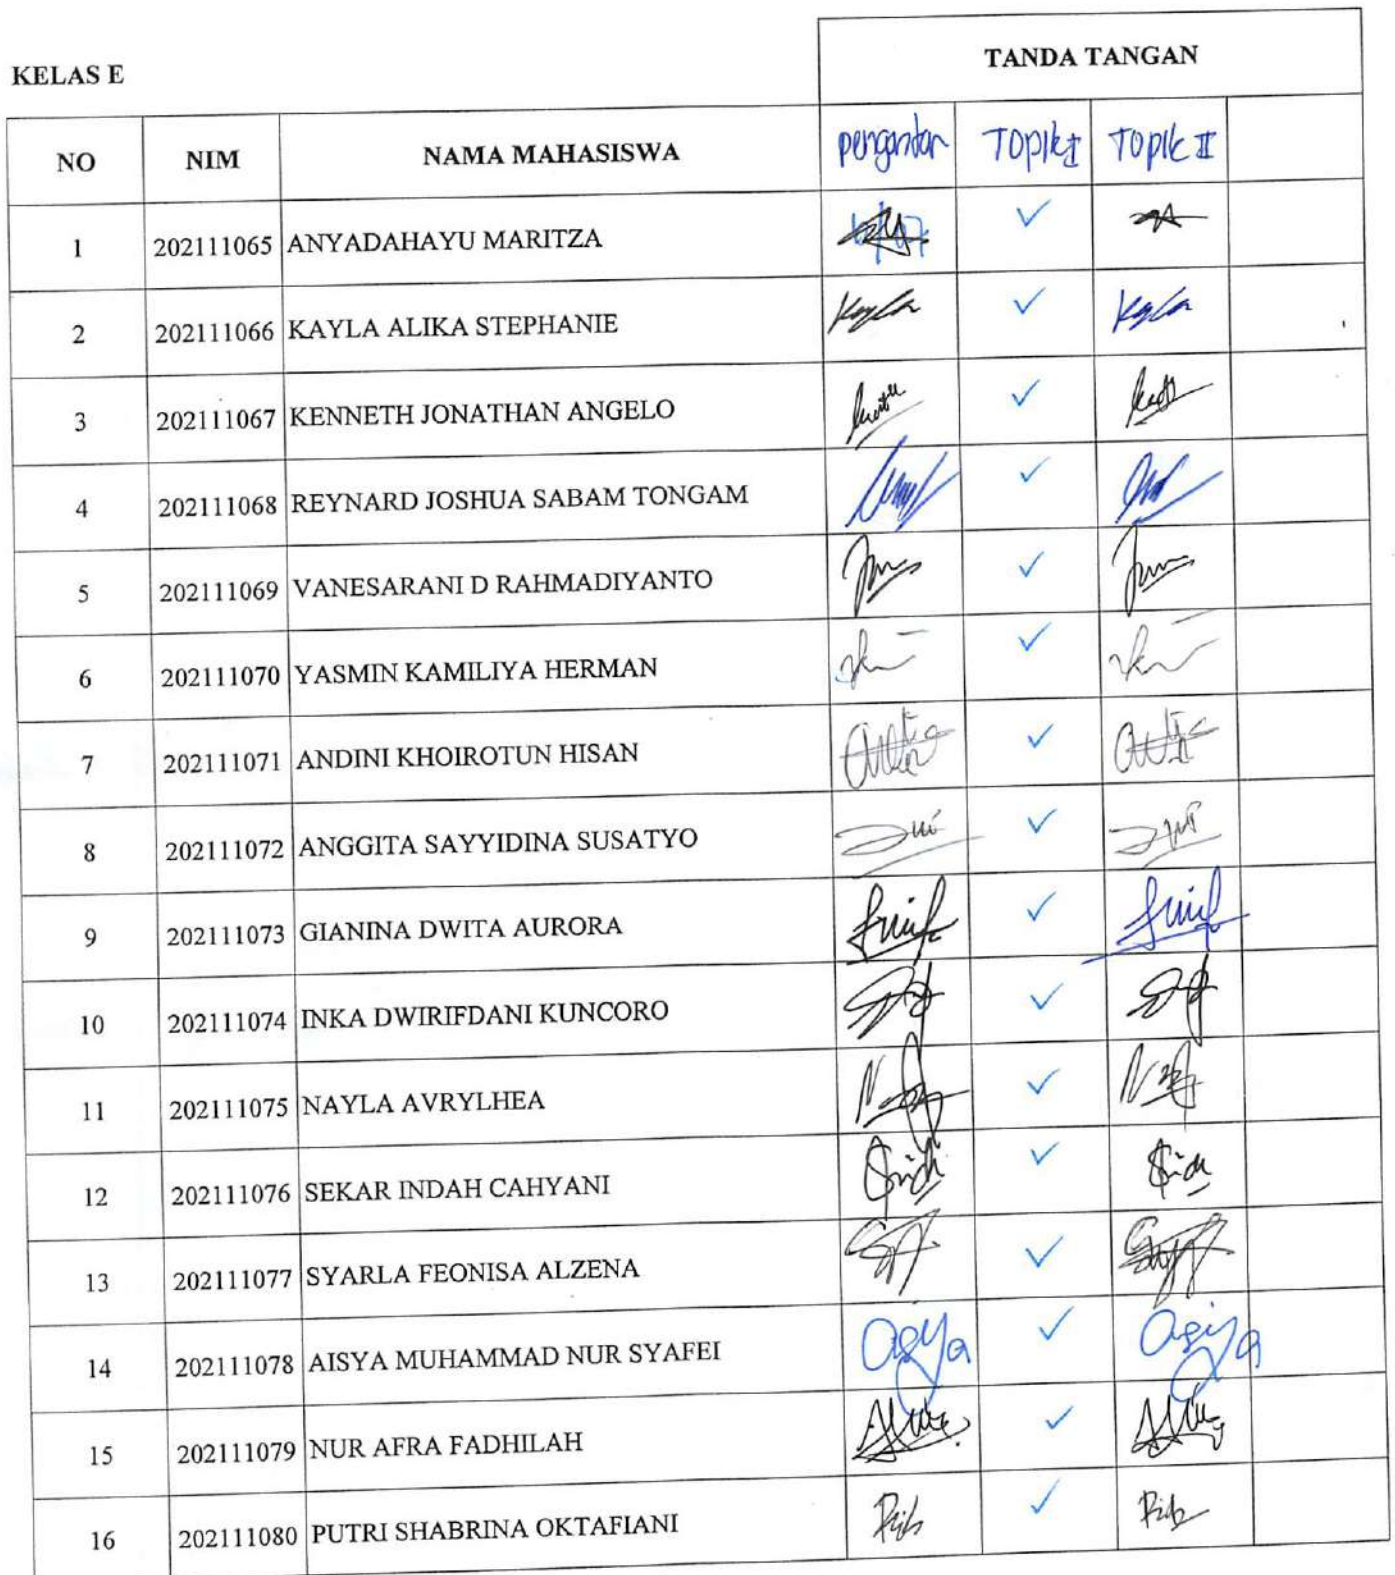 KELAS E
TANDA TANGAN
NO NIM NAMA MAHASISWA pengantar TOPIK I TOPIK II
1 202111065 ANYADAHAYU MARITZA ✓
2 202111066 KAYLA ALIKA STEPHANIE Kayla ✓ Kayla
3 202111067 KENNETH JONATHAN ANGELO ✓
4 202111068 REYNARD JOSHUA SABAM TONGAM ✓
5 202111069 VANESARANI D RAHMADIYANTO ✓
6 202111070 YASMIN KAMILIYA HERMAN ✓
7 202111071 ANDINI KHOIROTUN HISAN ✓
8 202111072 ANGGITA SAYYIDINA SUSATYO ✓
9 202111073 GIANINA DWITA AURORA ✓
10 202111074 INKA DWIRIFDANI KUNCORO ✓
11 202111075 NAYLA AVRYLHEA ✓
12 202111076 SEKAR INDAH CAHYANI ✓
13 202111077 SYARLA FEONISA ALZENA ✓
14 202111078 AISYA MUHAMMAD NUR SYAFEI ✓
15 202111079 NUR AFRA FADHILAH ✓
16 202111080 PUTRI SHABRINA OKTAFIANI ✓